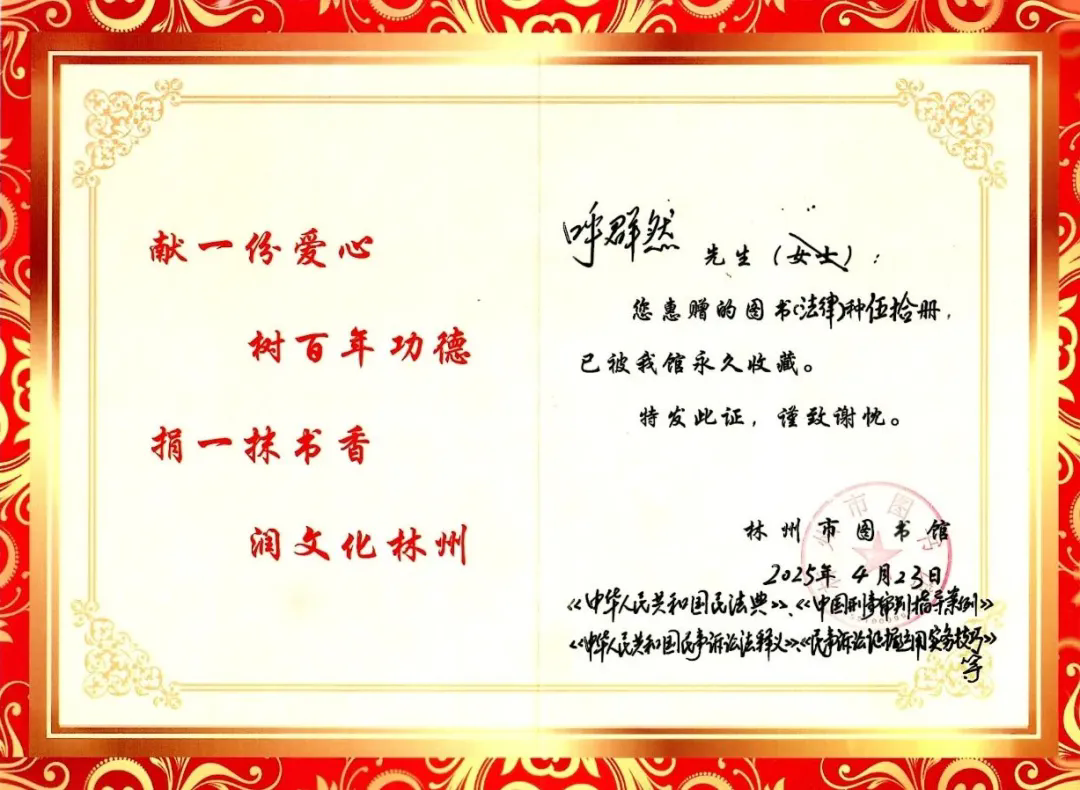 献一份爱心
树百年功德
捐一抹书香
润文化林州
呼群然 先生（女士）：
您惠赠的图书(法律)种伍拾册，
已被我馆永久收藏。
特发此证，谨致谢忱。
林州市图书馆
2025年4月23日
《中华人民共和国民法典》、《中国刑事审判指导案例》
《中华人民共和国民事诉讼法释义》、《民事诉讼证据运用实务技巧》
等